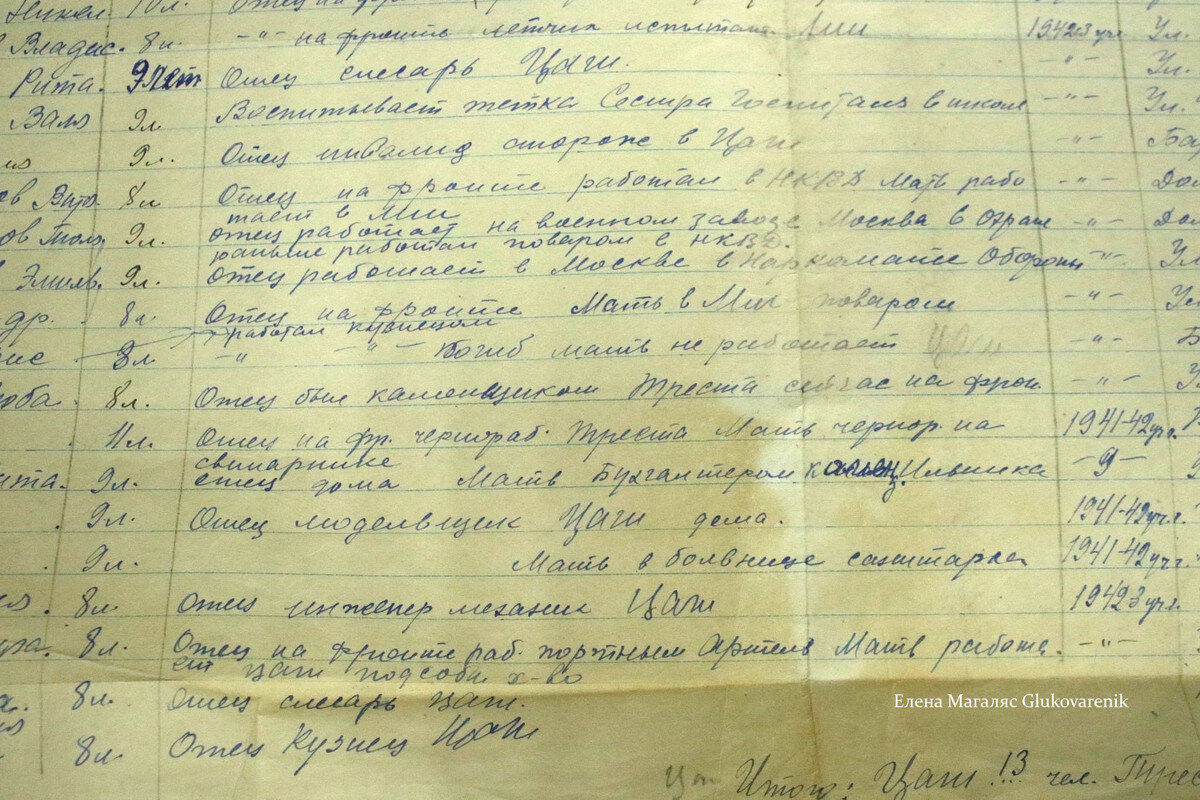 Никол. 10 л. Отец на фр
Владис. 8 л. -"- на фронте летчик испытат. Лии 1942-3 уч. Ул.
Рита. 9 лет Отец слесарь Цаги. -"- Ул.
Валя 9 л. Воспитывает тетка Сестра Госпиталь в школе -"- Ул.
9 л. Отец инвалид сторож в Цаги -"-
8 л. Отец на фронте работал в НКВД Мать рабо -"-
тает в Лии
9 л. отец работает на военном заводе Москва в Охране -"-
раньше работал поваром в НКВД.
9 л. отец работает в Москве в Наркомате Обороны -"- Ул
др. 8 л. Отец на фронте Мать в Лии поваром -"- Ул
работал кузнецом
8 л -"- -"- Погиб мать не работает Цаги -"- Б
юба. 8 л. Отец был каменщиком Треста сейчас на фрон. -"- У
11 л. Отец на фр. чернораб. Треста Мать чернор. на 1941-42 уч.
свинарнике
9 л. отец дома Мать Бухгалтером Ильинка -9-
. 9 л. Отец модельщик Цаги дома. 1941-42 уч. г.
. 9 л. Мать в больнице санитарка 1941-42 уч. г.
8 л. Отец инженер механик Цаги 1942 3 уч. г.
8 л. Отец на фронте раб. портным Артель Мать работа. -"-
ет Цаги подсобн. х-во
8 л. Отец слесарь Цаги.
8 л. Отец Кузнец Цаги
Елена Магаляс Glukovarenik
Цаги Итого: Цаги 13 чел. Трес